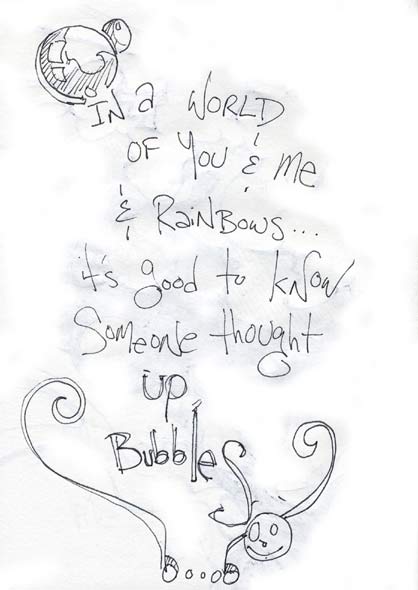 IN a WORLD
OF YOU & Me
& RaiNBOWS...
it's good to kNow
SomeoNe thought
up
BubbleS